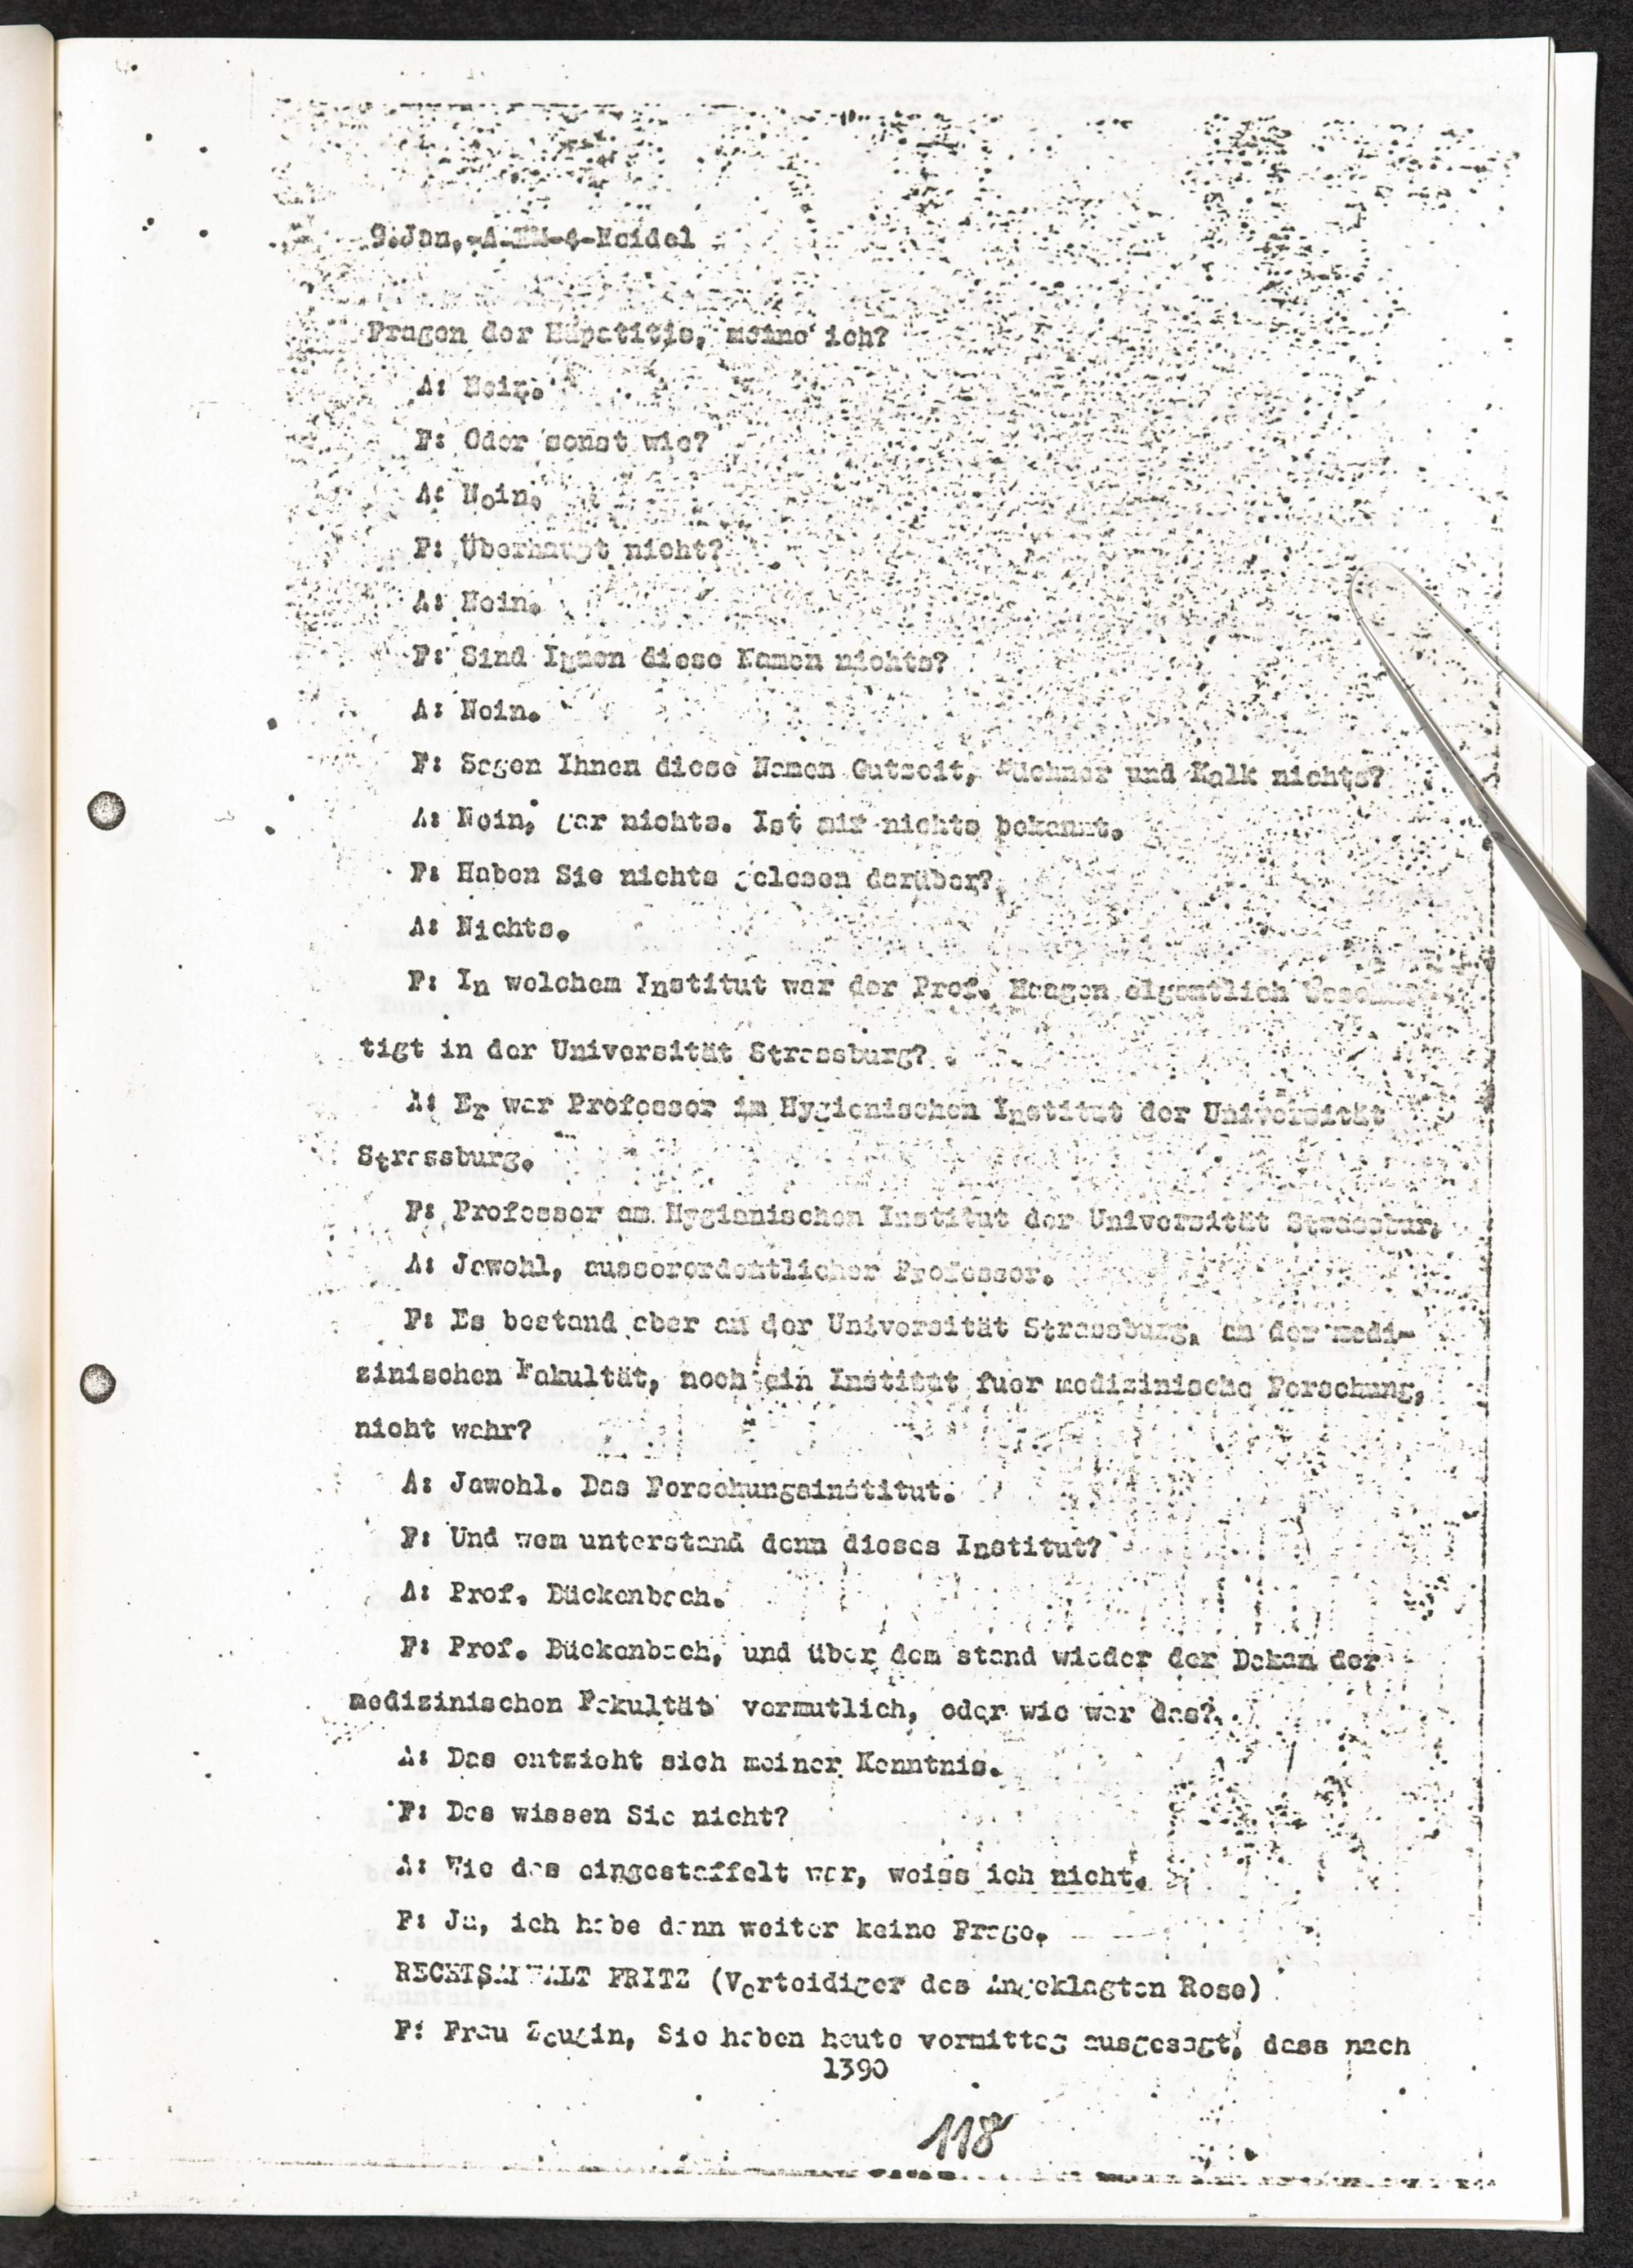 9.Jan.-A-MM-4-Meidel
Fragen der Hepatitis, meine ich?
A: Nein.
F: Oder sonst wie?
A: Nein.
F: Überhaupt nicht?
A: Nein.
F: Sind Ihnen diese Namen nichts?
A: Nein.
F: Sagen Ihnen diese Namen Gutzeit, Büchner und Kalk nichts?
A: Nein, gar nichts. Ist mir nichts bekannt.
F: Haben Sie nichts gelesen darüber?
A: Nichts.
F: In welchem Institut war der Prof. Haagen eigentlich beschäf-
tigt in der Universität Strassburg?
A: Er war Professor im Hygienischen Institut der Universität
Strassburg.
F: Professor am Hygianischen Institut der Universität Strassbur.
A: Jawohl, ausserordentlicher Professor.
F: Es bestand aber an der Universität Strassburg, an der medi-
zinischen Fakultät, noch ein Institut fuer medizinische Forschung,
nicht wahr?
A: Jawohl. Das Forschungsinstitut.
F: Und wem unterstand denn dieses Institut?
A: Prof. Bückenbach.
F: Prof. Bückenbach, und über dem stand wieder der Dekan der
medizinischen Fakultät vermutlich, oder wie war das?
A: Das entzieht sich meiner Kenntnis.
F: Das wissen Sie nicht?
A: Wie das eingestaffelt war, weiss ich nicht.
F: Ja, ich habe dann weiter keine Frage.
RECHTSANWALT FRITZ (Verteidiger des Angeklagten Rose)
F: Frau Zeugin, Sie haben heute vormittag ausgesagt, dass nach
1390
118